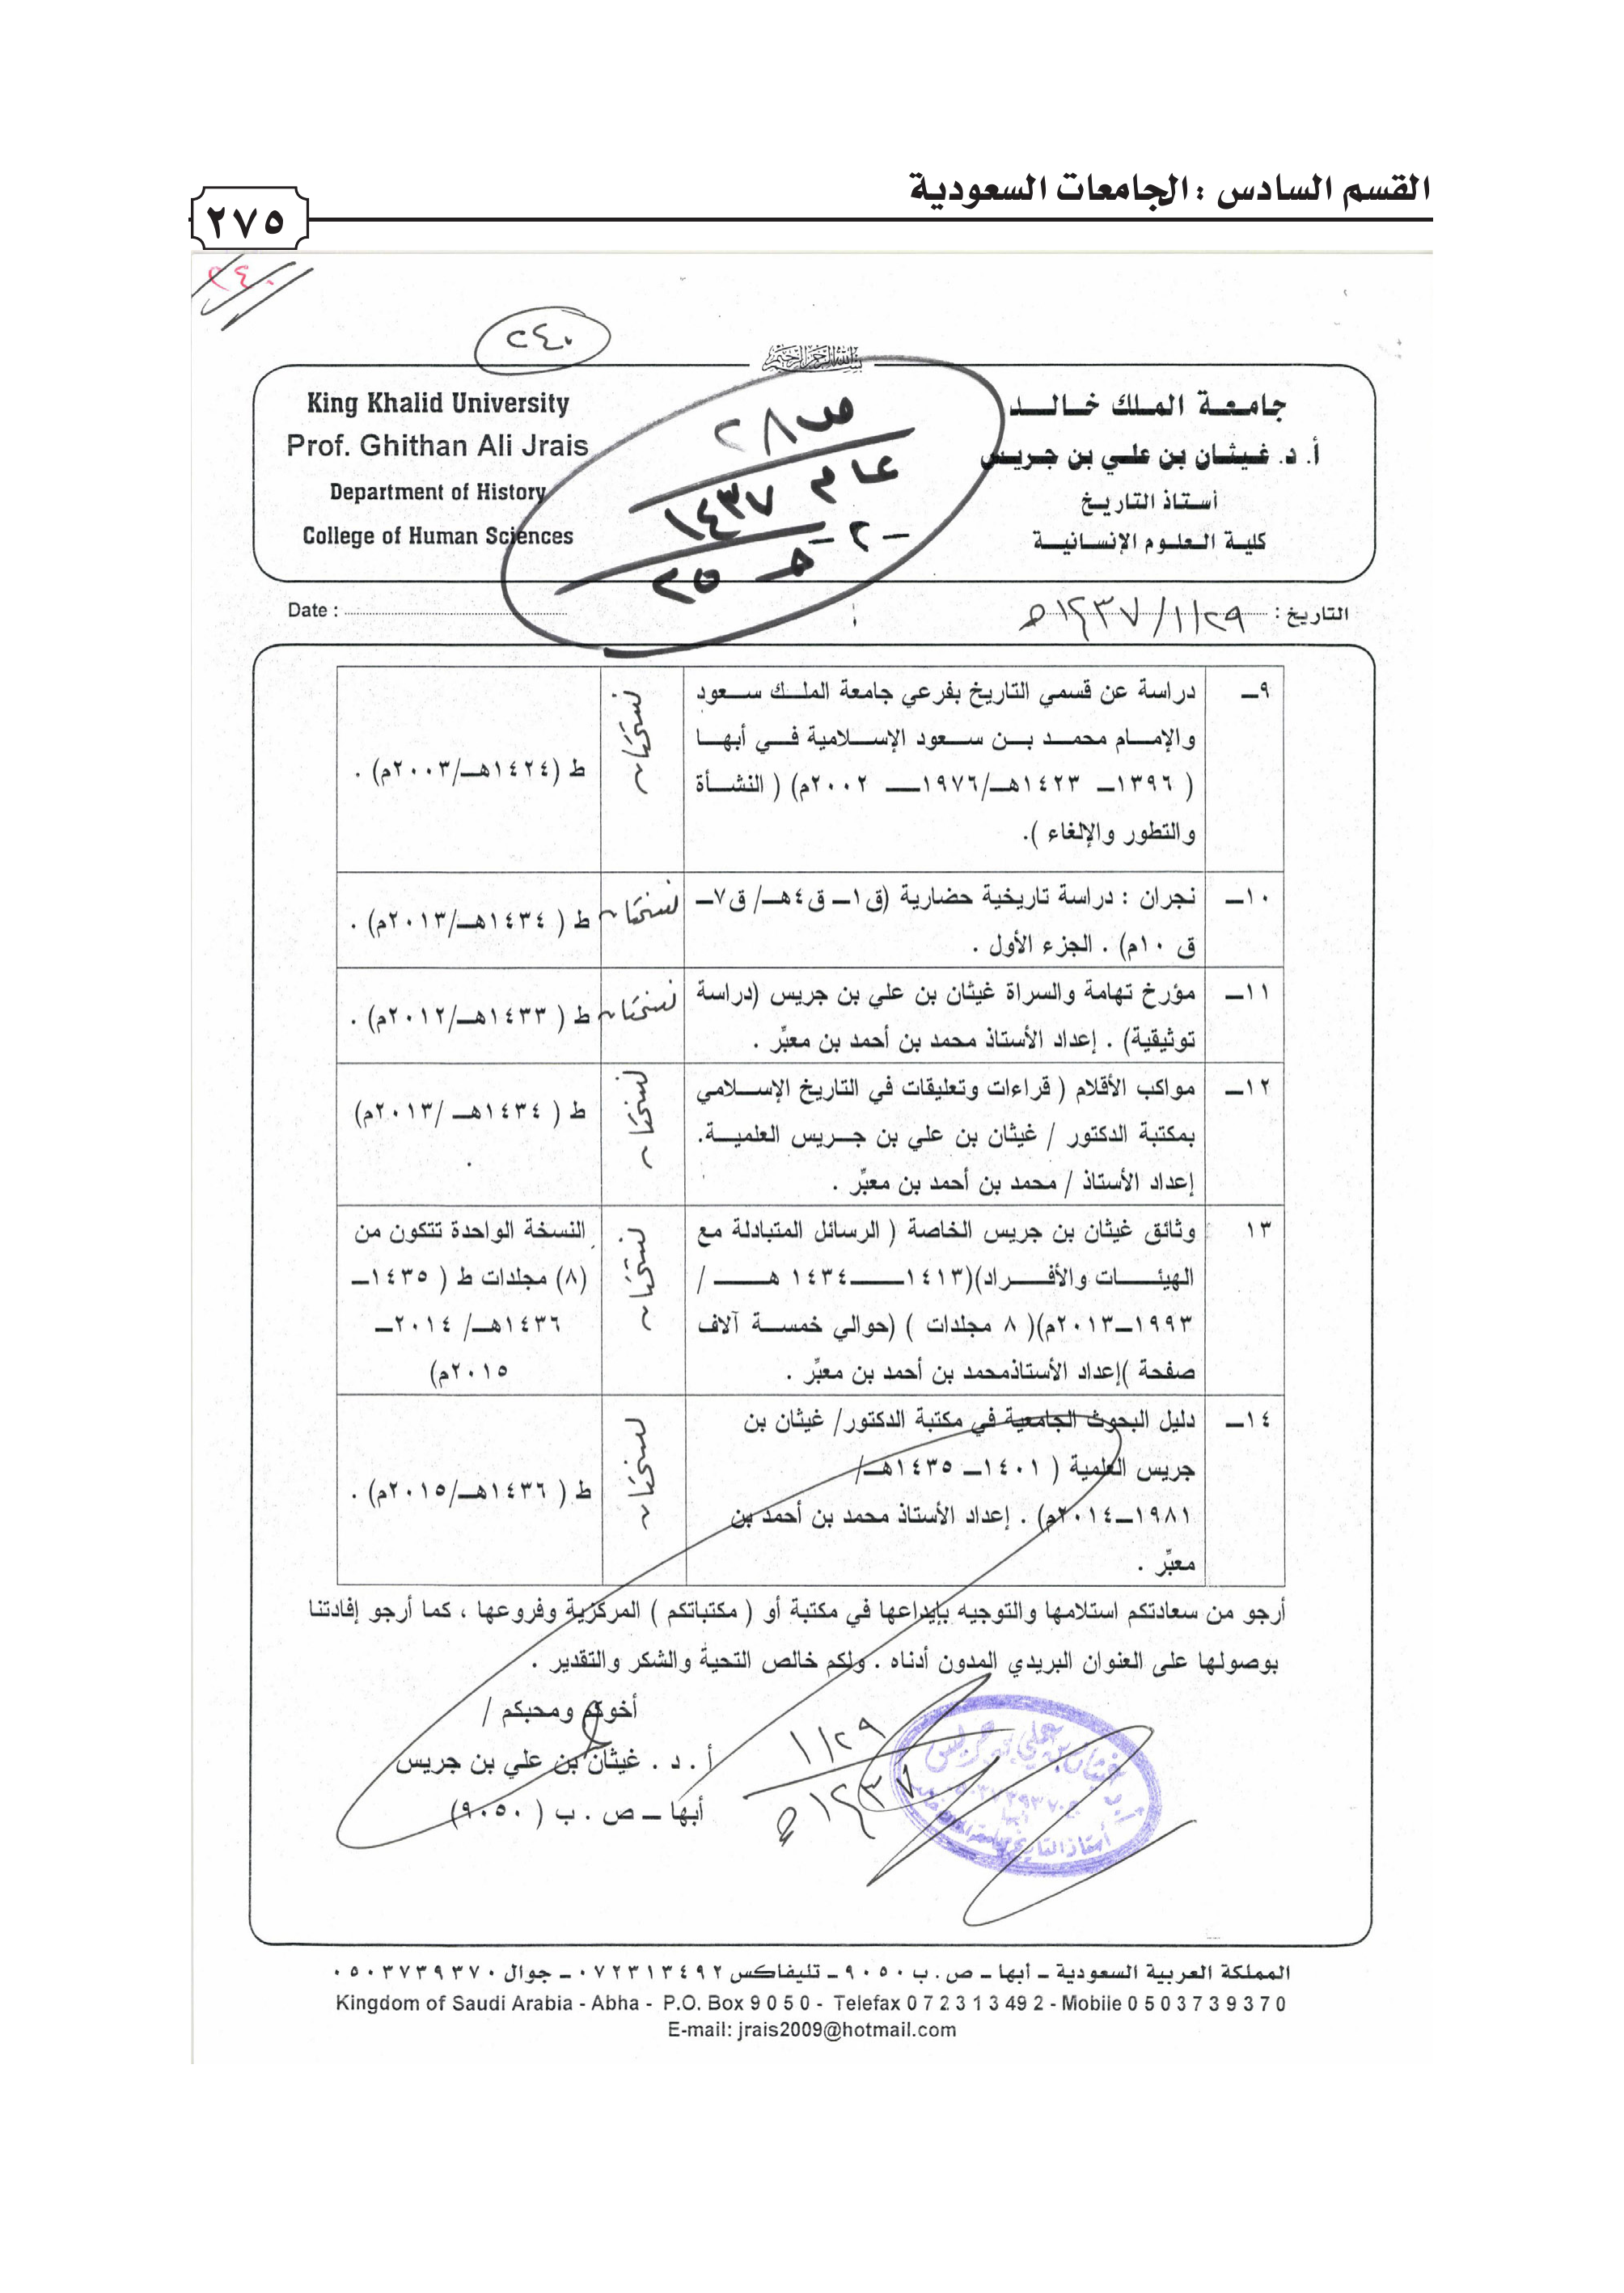 القسم السادس : الجامعات السعودية
٢٧٥
٢٤٠
٢٤٠
بسم الله الرحمن الرحيم
جامعة الملك خالد
أ. د. غيثان بن علي بن جريس
أستاذ التاريخ
كلية العلوم الإنسانية
King Khalid University
Prof. Ghithan Ali Jrais
Department of History
College of Human Sciences
ص ٢٨
عام ١٤٣٧
-٢-
هـ ٢٥
التاريخ : ١٤٣٧/١/٢٩هـ
Date :
٩ـ
دراسة عن قسمي التاريخ بفرعي جامعة الملك سعود
والإمام محمد بن سعود الإسلامية في أبها
( ١٣٩٦ـ ١٤٢٣هـ/١٩٧٦ـ ٢٠٠٢م) ( النشأة
والتطور والإلغاء ).
نسختان
ط (١٤٢٤هـ/٢٠٠٣م) .
١٠ـ
نجران : دراسة تاريخية حضارية (ق١ـ ق٤هـ/ ق٧ـ
ق ١٠م) . الجزء الأول .
نسختان
ط ( ١٤٣٤هـ/٢٠١٣م) .
١١ـ
مؤرخ تهامة والسراة غيثان بن علي بن جريس (دراسة
توثيقية) . إعداد الأستاذ محمد بن أحمد بن معبِّر .
نسختان
ط ( ١٤٣٣هـ/٢٠١٢م) .
١٢ـ
مواكب الأقلام ( قراءات وتعليقات في التاريخ الإسلامي
بمكتبة الدكتور / غيثان بن علي بن جريس العلمية.
إعداد الأستاذ / محمد بن أحمد بن معبِّر .
نسختان
ط ( ١٤٣٤هـ /٢٠١٣م)
.
١٣
وثائق غيثان بن جريس الخاصة ( الرسائل المتبادلة مع
الهيئات والأفراد)(١٤١٣ـ١٤٣٤ هـ /
١٩٩٣ـ٢٠١٣م)( ٨ مجلدات ) (حوالي خمسة آلاف
صفحة )إعداد الأستاذمحمد بن أحمد بن معبِّر .
نسختان
النسخة الواحدة تتكون من
(٨) مجلدات ط ( ١٤٣٥ـ
١٤٣٦هـ/ ٢٠١٤ـ
٢٠١٥م)
١٤ـ
دليل البحوث الجامعية في مكتبة الدكتور/ غيثان بن
جريس العلمية ( ١٤٠١ـ ١٤٣٥هـ/
١٩٨١ـ٢٠١٤م) . إعداد الأستاذ محمد بن أحمد بن
معبِّر .
نسختان
ط ( ١٤٣٦هـ/٢٠١٥م) .
أرجو من سعادتكم استلامها والتوجيه بإيداعها في مكتبة أو ( مكتباتكم ) المركزية وفروعها ، كما أرجو إفادتنا
بوصولها على العنوان البريدي المدون أدناه . ولكم خالص التحية والشكر والتقدير .
أخوكم ومحبكم /
أ . د . غيثان بن علي بن جريس
أبها ـ ص . ب ( ٩٠٥٠)
١/٢٩
١٤٣٧هـ
غيثان بن علي بن جريس
أبها
أستاذ التاريخ
المملكة العربية السعودية ـ أبها ـ ص . ب ٩٠٥٠ ـ تليفاكس ٠٧٢٣١٣٤٩٢ ـ جوال ٠٥٠٣٧٣٩٣٧٠
Kingdom of Saudi Arabia - Abha - P.O. Box 9 0 5 0 - Telefax 0 7 2 3 1 3 49 2 - Mobile 0 5 0 3 7 3 9 3 7 0
E-mail: jrais2009@hotmail.com